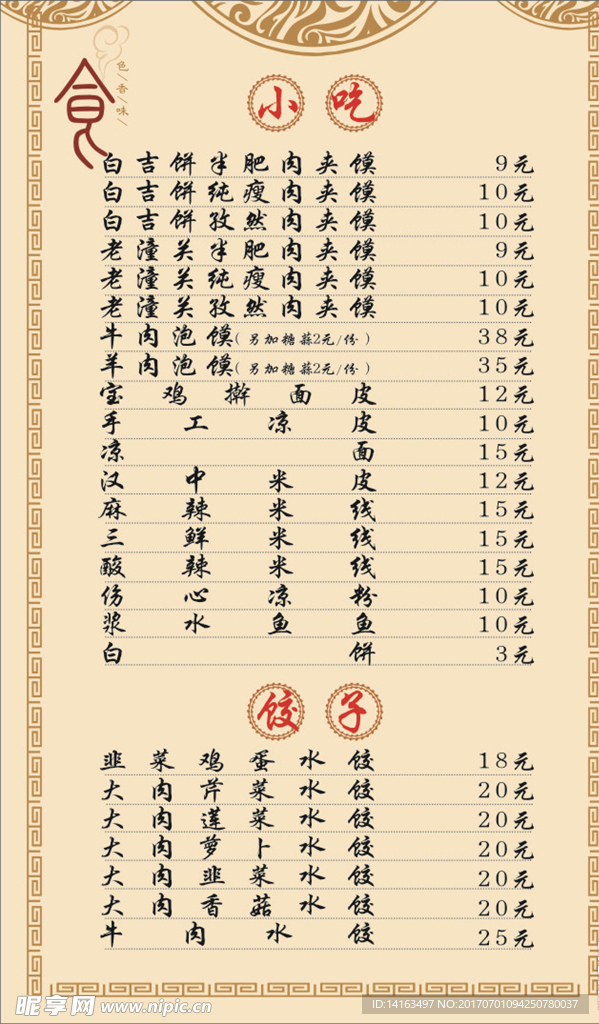 食
色/香/味/
小吃
白吉饼半肥肉夹馍 9元
白吉饼纯瘦肉夹馍 10元
白吉饼孜然肉夹馍 10元
老潼关半肥肉夹馍 9元
老潼关纯瘦肉夹馍 10元
老潼关孜然肉夹馍 10元
牛肉泡馍(另加糖蒜2元/份) 38元
羊肉泡馍(另加糖蒜2元/份) 35元
宝鸡擀面皮 12元
手工凉皮 10元
凉面 15元
汉中米皮 12元
麻辣米线 15元
三鲜米线 15元
酸辣米线 15元
伤心凉粉 10元
浆水鱼鱼 10元
白饼 3元
饺子
韭菜鸡蛋水饺 18元
大肉芹菜水饺 20元
大肉莲菜水饺 20元
大肉萝卜水饺 20元
大肉韭菜水饺 20元
大肉香菇水饺 20元
牛肉水饺 25元
昵享网 www.nipic.cn
ID:14163497 NO:20170701094250780037